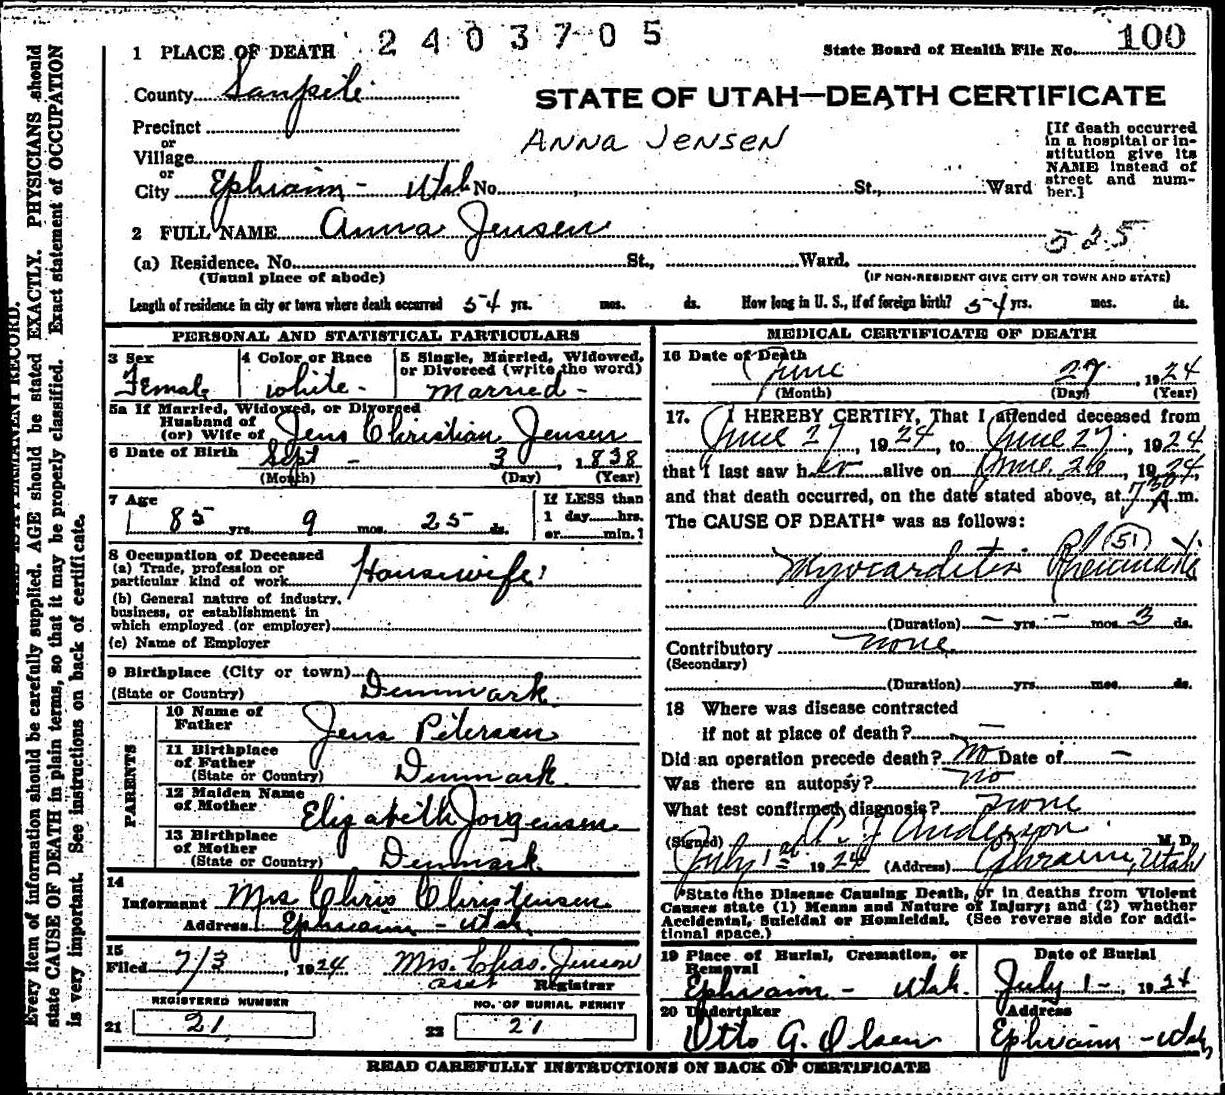 2403705
State Board of Health File No. 100
1 PLACE OF DEATH
County Sanpete
STATE OF UTAH—DEATH CERTIFICATE
Precinct
or
Village
ANNA JENSEN
[If death occurred
in a hospital or in-
stitution give its
NAME instead of
street and num-
ber.]
or
City Ephraim - Utah No. St., Ward
2 FULL NAME Anna Jensen
525
(a) Residence. No. St., Ward.
(Usual place of abode) (IF NON-RESIDENT GIVE CITY OR TOWN AND STATE)
Length of residence in city or town where death occurred 54 yrs. mos. ds. How long in U. S., if of foreign birth? 54 yrs. mos. ds.
PERSONAL AND STATISTICAL PARTICULARS
3 Sex
Female
4 Color or Race
White -
5 Single, Married, Widowed,
or Divorced (write the word)
Married -
5a If Married, Widowed, or Divorced
Husband of
(or) Wife of Jens Christian Jensen
6 Date of Birth Sept - 3, 1838
(Month) (Day) (Year)
7 Age
85 yrs. 9 mos. 25 ds.
If LESS than
1 day......hrs.
or......min.?
8 Occupation of Deceased
(a) Trade, profession or
particular kind of work Housewife
(b) General nature of industry,
business, or establishment in
which employed (or employer)
(c) Name of Employer
9 Birthplace (City or town)
(State or Country) Denmark
PARENTS
10 Name of
Father Jens Petersen
11 Birthplace
of Father
(State or Country) Denmark
12 Maiden Name
of Mother Elizabeth Jorgensen
13 Birthplace
of Mother
(State or Country) Denmark
14
Informant Mrs Chris Christensen
Address Ephraim - Utah.
15
Filed 7/3, 1924 Mrs. Chas. Jensen
asst Registrar
REGISTERED NUMBER
21 21
NO. OF BURIAL PERMIT
22 21
MEDICAL CERTIFICATE OF DEATH
16 Date of Death
June 27, 1924
(Month) (Day) (Year)
17. I HEREBY CERTIFY, That I attended deceased from
June 27, 1924, to June 27, 1924
that I last saw her alive on June 26, 1924,
and that death occurred, on the date stated above, at 7 30 A. m.
The CAUSE OF DEATH* was as follows:
51
Myocarditis Rheumatic
(Duration) - yrs. - mos. 3 ds.
Contributory none
(Secondary)
(Duration) yrs. mos. ds.
18 Where was disease contracted
if not at place of death? —
Did an operation precede death? No Date of —
Was there an autopsy? no
What test confirmed diagnosis? none
(Signed) A. J. Anderson M. D.
July 1st 1924 (Address) Ephraim, Utah
*State the Disease Causing Death, or in deaths from Violent
Causes state (1) Means and Nature of Injury; and (2) whether
Accidental, Suicidal or Homicidal. (See reverse side for addi-
tional space.)
19 Place of Burial, Cremation, or
Removal
Ephraim - Utah.
Date of Burial
July 1 -, 1924
20 Undertaker
Otto G. Olsen
Address
Ephraim - Utah,
READ CAREFULLY INSTRUCTIONS ON BACK OF CERTIFICATE
Every item of information should be carefully supplied. AGE should be stated EXACTLY. PHYSICIANS should
state CAUSE OF DEATH in plain terms, so that it may be properly classified. Exact statement of OCCUPATION
is very important. See instructions on back of certificate.
IS A PERMANENT RECORD.